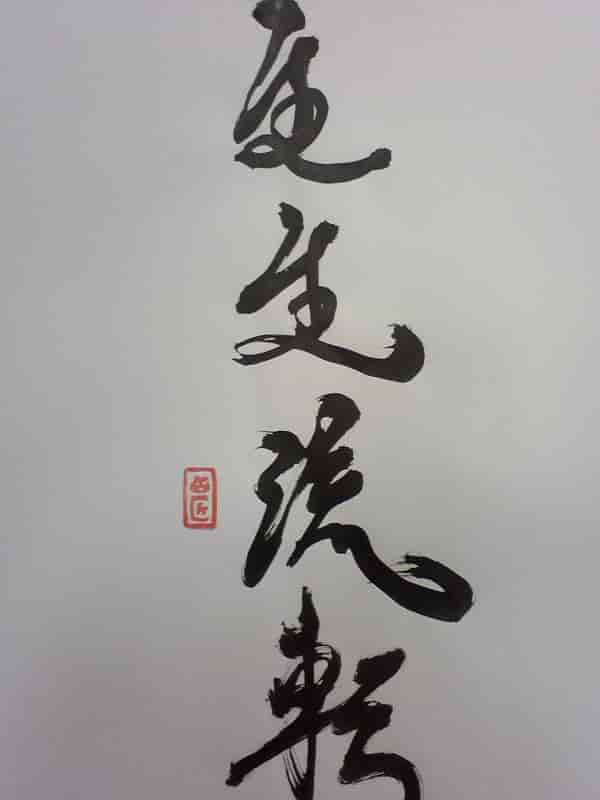 生生流転